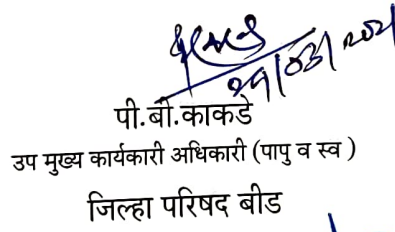 पी.बी.काकडे
उप मुख्य कार्यकारी अधिकारी (पापु व स्व )
जिल्हा परिषद बीड